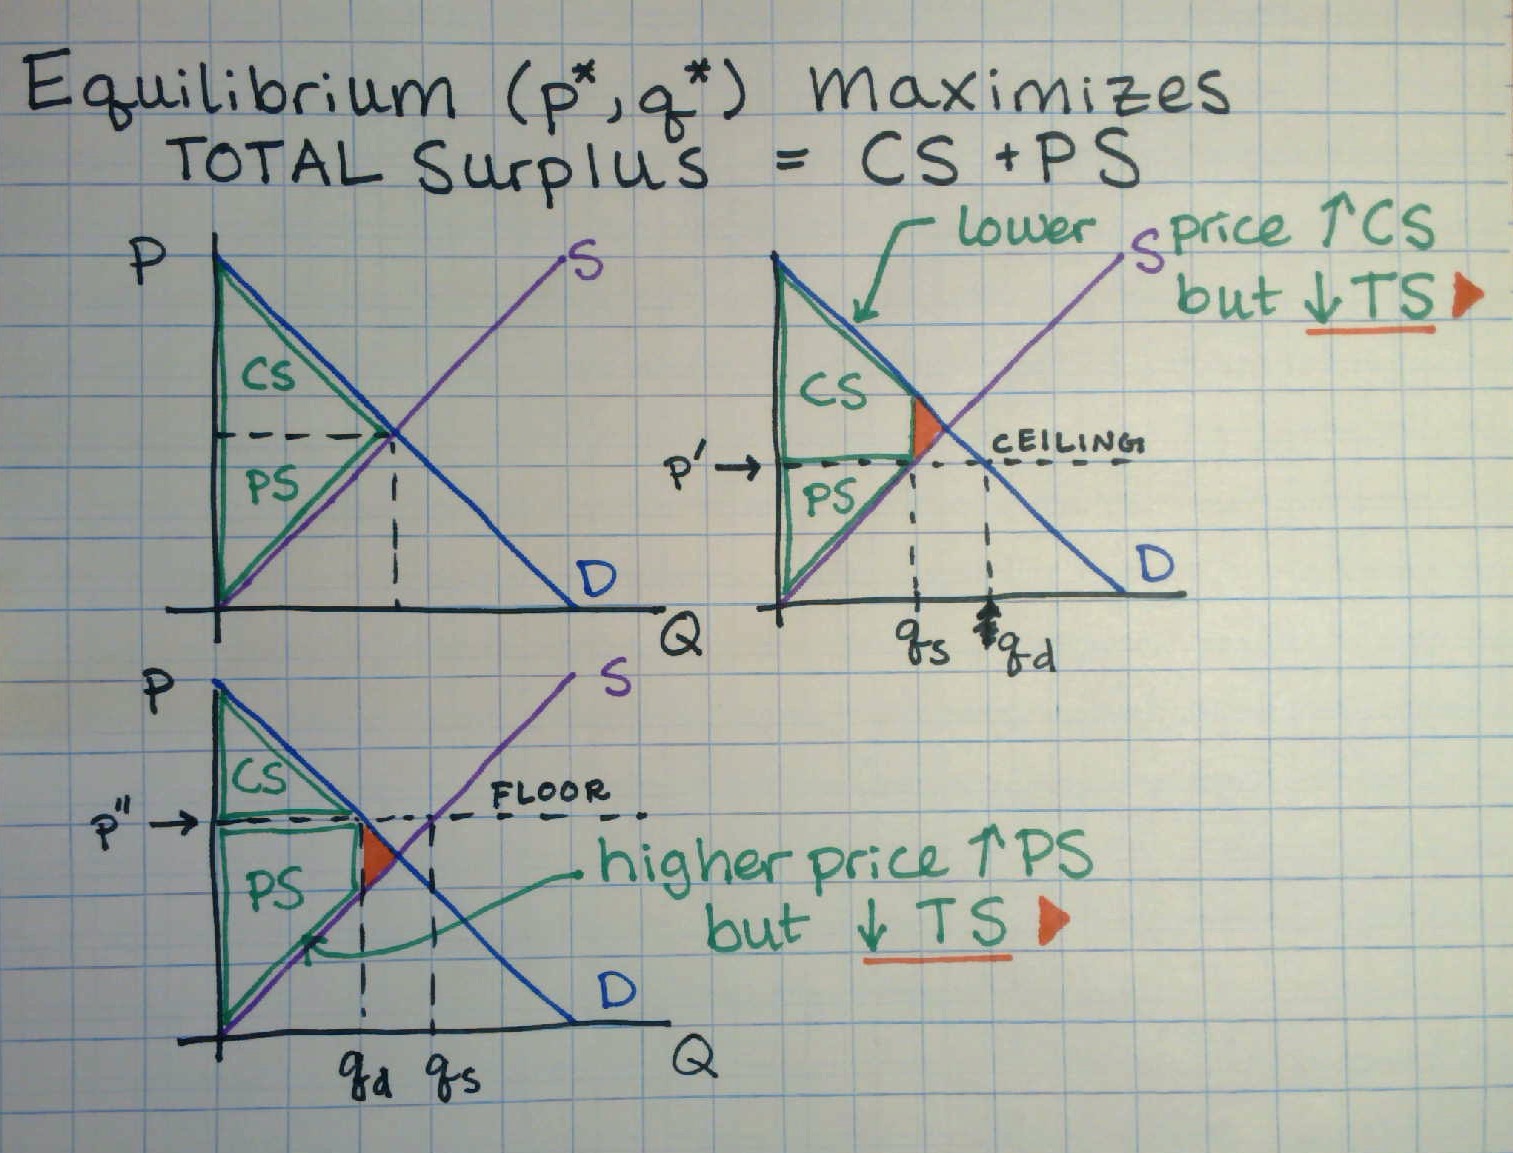 Equilibrium (p*, q*) maximizes
TOTAL Surplus = CS + PS
lower price ↑ CS
but ↓ TS
P
S
CS
PS
D
Q
S
CS
p' → CEILING
PS
D
qs qd
P
S
CS
p" → FLOOR
PS
higher price ↑ PS
but ↓ TS
D
Q
qd qs